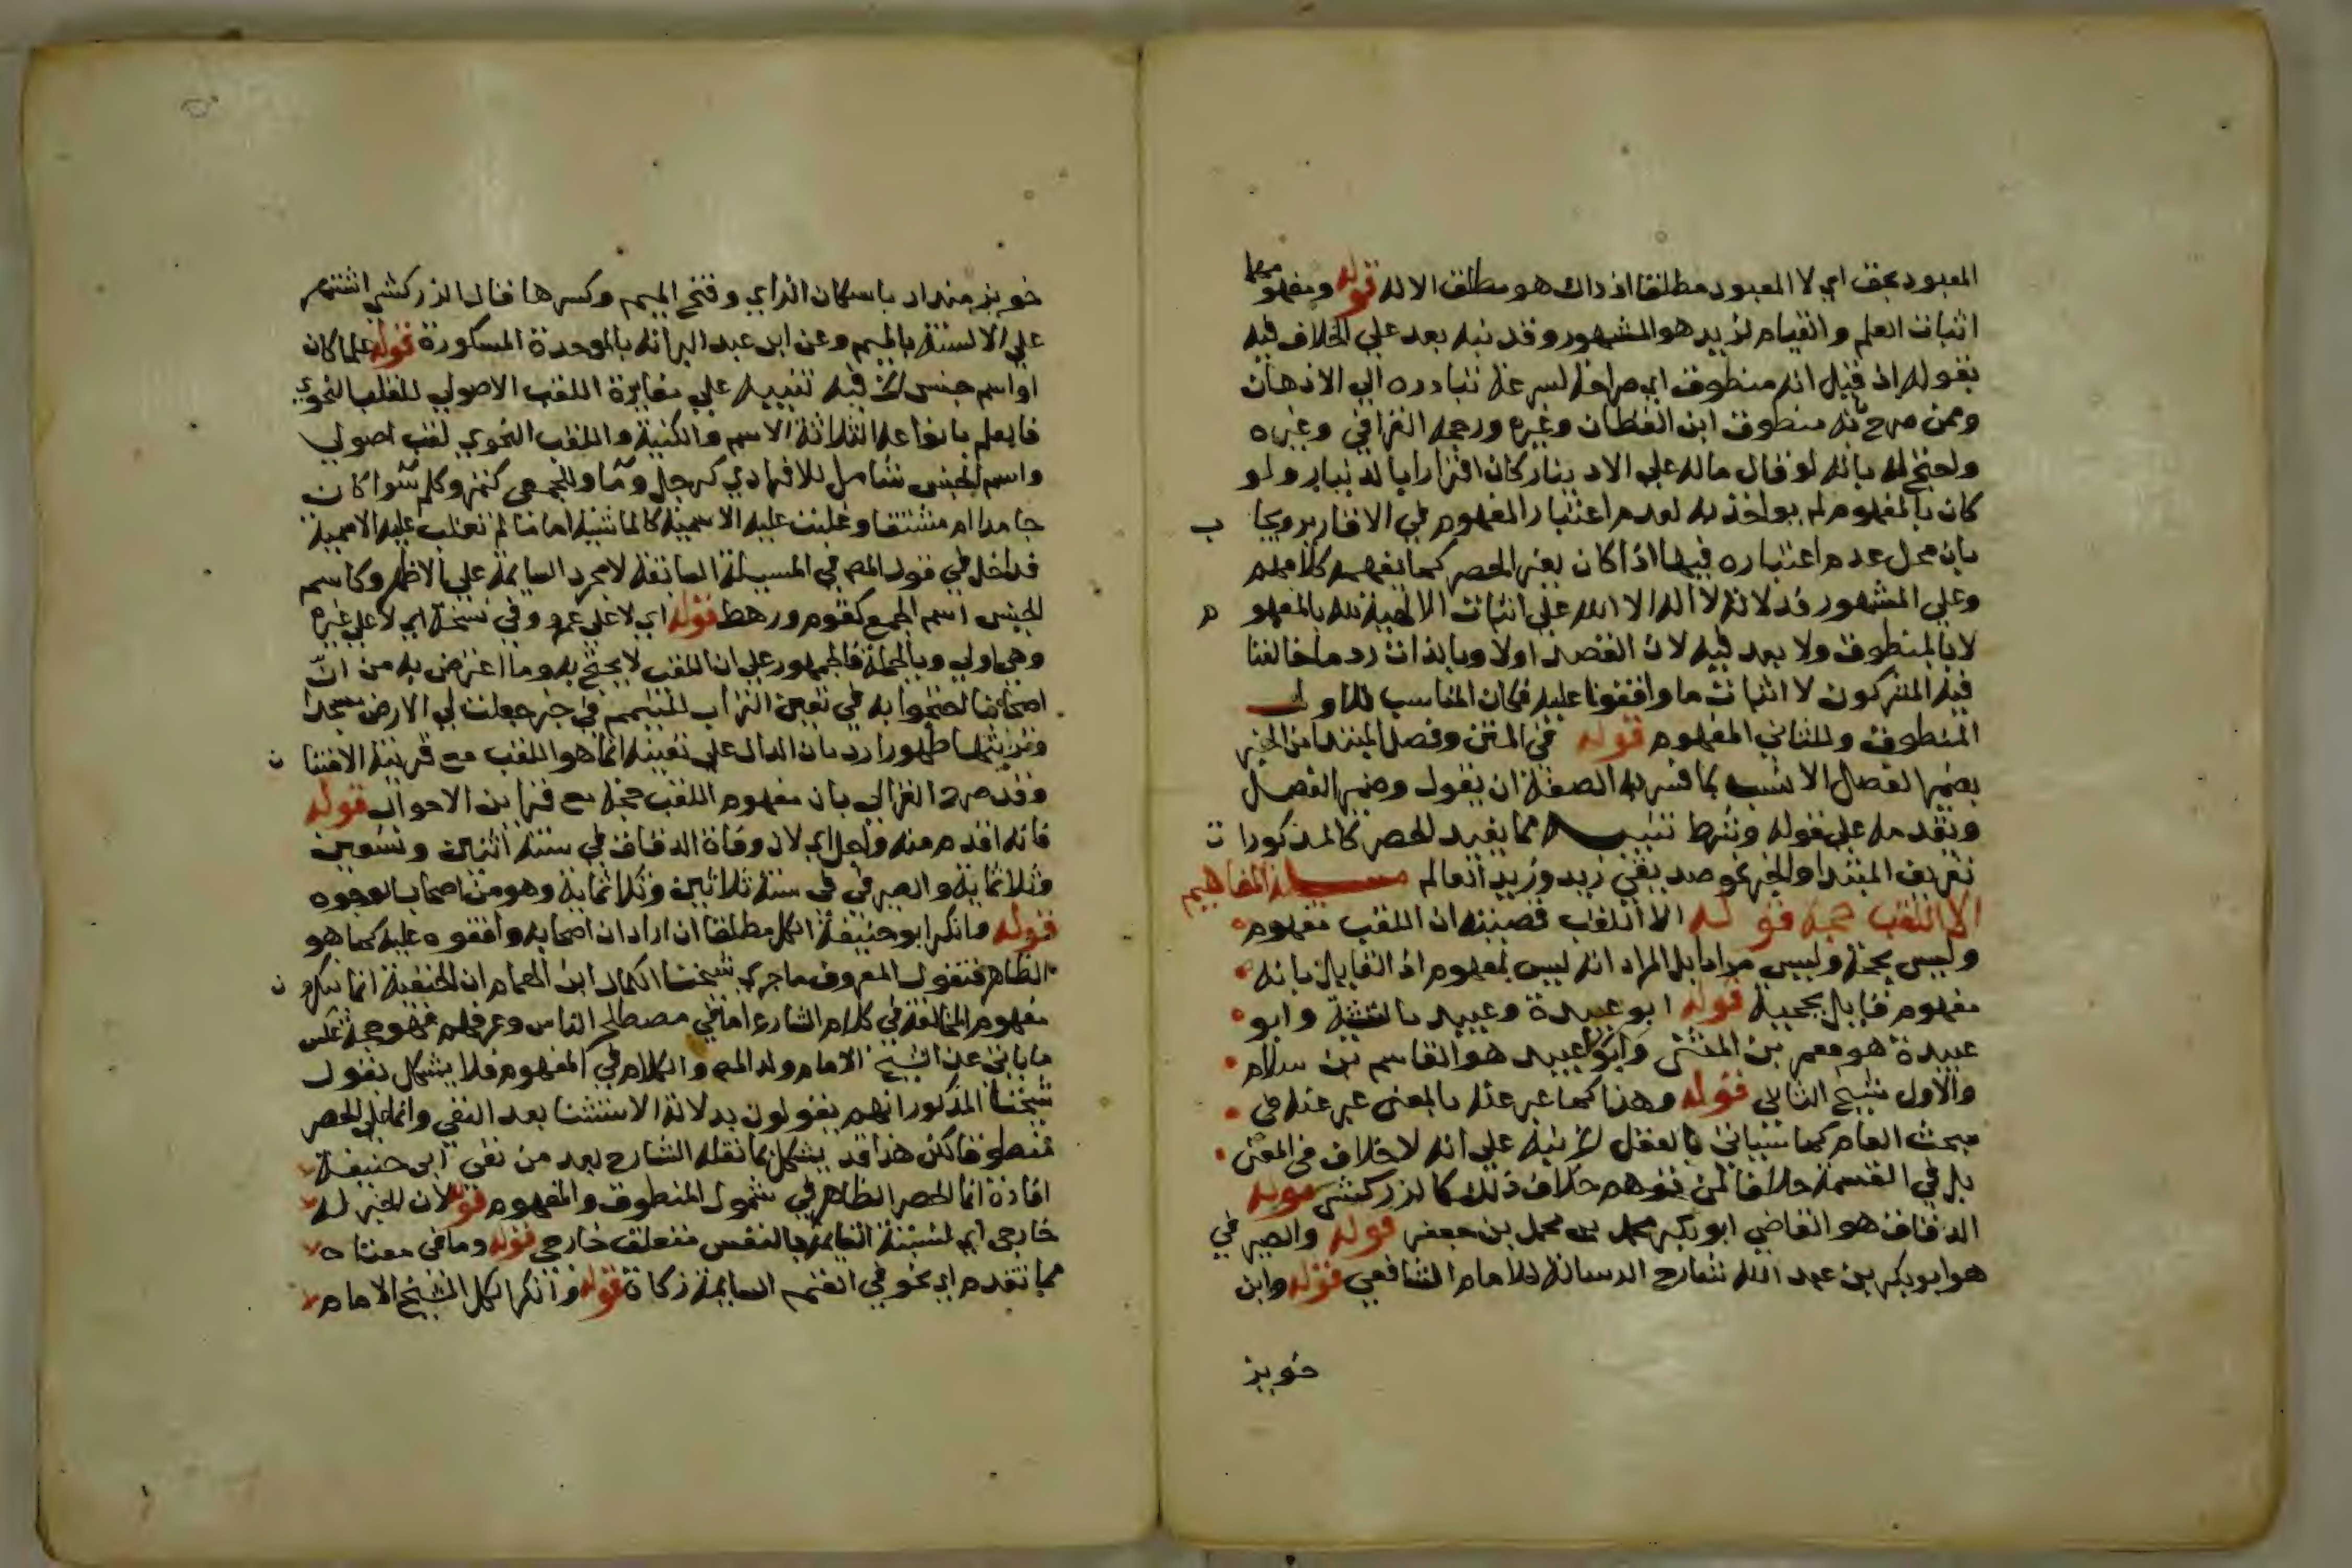 المعبود بحق اي لا المعبود مطلقا اذ ذاك هو مطلق الاله قوله ومفهومها
اثبات العلم والقيام لزيد هو المشهور وقد نبه بعد علي الخلاف فيه
بقوله اذ قيل انه منطوق اي صراحة لسرعة تبادره الي الاذهان
وممن صرح بانه منطوق ابن القطان وغيره ورجحه القرافي وغيره
واحتج له بانه لو قال ماله علي الا دينار كان اقرارا بالدينار ولو
كان بالمفهوم لم يواخذ به لعدم اعتبار المفهوم في الاقارير ويجا ب
بان محل عدم اعتباره فيها اذا كان بغير الحصر كما يفهمه كلامهم
وعلي المشهور فدلالة لا اله الا الله علي اثبات الالهية لله بالمفهو م
لا بالمنطوق ولا بعد فيه لان القصد اولا وبالذات رد ما خالفنا
فيه المشركون لا اثبات ما وافقونا عليه فكان المناسب للاول
المنطوق وللثاني المفهوم قوله في المتن وفصل المبتدا من الخبر
بضمير الفصل الانسب بما فسر به الصفة ان يقول وضمير الفصل
وتقدمه علي قوله وشرط تنبيه مما يفيد الحصر كالمذكورا ت
تعريف المبتدا والخبر نحو صديقي زيد وزيد العالم مسيلة المفاهيم
الا اللقب حجة قوله الا اللقب قضيته ان اللقب مفهوم
وليس بحجة وليس مرادا بل المراد انه ليس بمفهوم اذ القايل بانه
مفهوم قايل بحجيته قوله ابو عبيدة وعبيد وابو
عبيدة هو معمر بن المثنى وابو عبيد هو القاسم بن سلام
والاول شيخ الثاني قوله وهذا كما عبر عنه بالمعنى عبر عنه في
مبحث العام كما سياتي بالعقل نبه علي انه لا خلاف في المعنى
بل في القسمة خلافا لمن توهم خلاف ذلك كالزركشي قوله
الدقاق هو القاضي ابو بكر محمد بن محمد بن جعفر قوله والصيرفي
هو ابو بكر بن عبد الله شارح الرسالة للامام الشافعي قوله وابن
خويز
خويز منداد باسكان الزاي وفتح الميم وكسرها قال الزركشي اشتهر
علي الالسنة بالميم وعن ابن عبد البر انه بالموحدة المكسورة قوله علما كان
او اسم جنس فيه تنبيه علي مغايرة اللقب الاصولي للقب النحوي
فالعلم بانواعه الثلاثة الاسم والكنية واللقب النحوي لقب اصولي
واسم الجنس شامل للافرادي كرجل وما وللجمعي كتمر وكلم سوا كان
جامدا ام مشتقا وغلبت عليه الاسمية كالماشية اما ما لم تغلب عليه الاسمية
فداخل في قول المص في المسيلة السابقة لا مجرد السايمة علي الاظهر وكاسم
الجنس اسم الجمع كقوم ورهط قوله اي لا علي عمرو وفي نسخة اي لا علي غيره
وهي اولي وبالجملة فالجمهور علي ان اللقب لا يحتج به وما اعترض به من ان
اصحابنا احتجوا به في تعيين التراب للتيمم في خبر جعلت لي الارض مسجدا
وتربتها طهورا رد بان الدال علي تعيينه انما هو اللقب مع قرينة الامتنا ن
وقد صرح الغزالي بان مفهوم اللقب حجة مع قراين الاحوال قوله
فانه اقدم منه واجل اي لان وفاة الدقاق في سنة اثنين وتسعين
وثلاثماية والصيرفي في سنة ثلاثين وثلاثماية وهو من اصحاب الوجوه
قوله وانكر ابو حنيفة الكل مطلقا ان اراد ان اصحابه وافقوه عليه كما هو
الظاهر فنقول المعروف ما حرره شيخنا الكمال ابن الهمام ان الحنفية انما ينكرو ن
مفهوم المخالفة في كلام الشارع اما في مصطلح الناس وعرفهم فهو حجة عكس
ما ياتي عن الشيخ الامام ولد المص والكلام في المفهوم فلا يشكل بقول
شيخنا المذكور انهم يقولون بدلالة الاستثنا بعد النفي وانما علي الحصر
منطوقا لكن هذا قد يشكل بما نقله الشارح بعد من نفي ابي حنيفة
افادة انما الحصر الظاهر في شمول المنطوق والمفهوم قوله لان الخبر له
خارجي اي لنسبته القايمة بالنفس متعلق خارجي قوله وما في معناه
مما تقدم اي نحو في الغنم السايمة زكاة قوله وانكر الكل الشيخ الامام